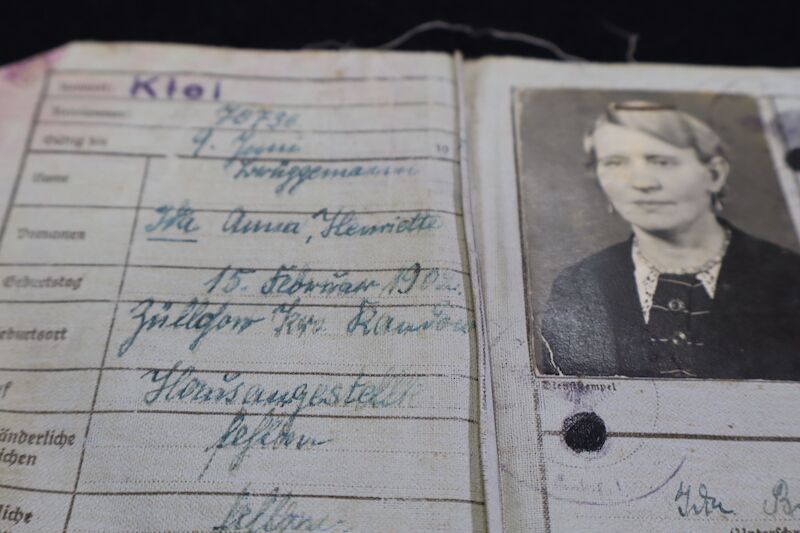 Kiel
Kennnummer: 70736
Gültig bis 9. Juni 19
Name Brüggemann
Vornamen Ida Anna, Henriette
Geburtstag 15. Februar 190
eburtsort Züllchow Krs. Randow
f Hausangestellte
änderliche fehlen
ichen
liche fehlen
Dienststempel
Ida B